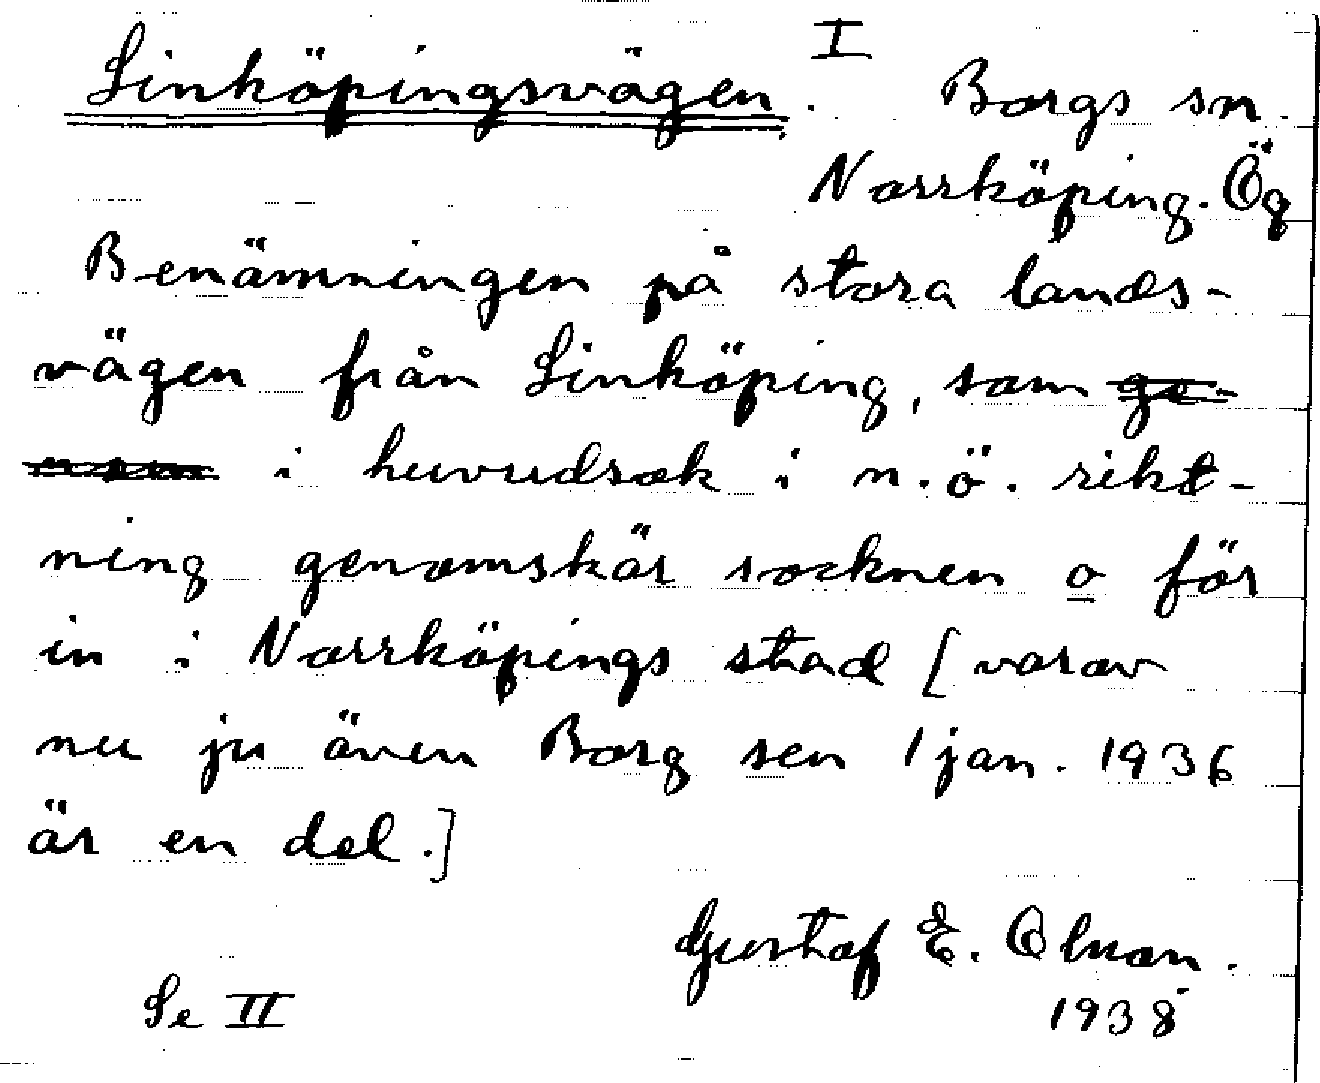 I
Linköpingsvägen. Borgs sn.
Norrköping. Ög
Benämningen på stora lands-
vägen från Linköping, som ge-
nom i huvudsak i n.ö. rikt-
ning genomskär socknen o för
in i Norrköpings stad [varav
nu ju även Borg sen 1 jan. 1936
är en del.]
Gustaf E. Olman.
Se II 1938